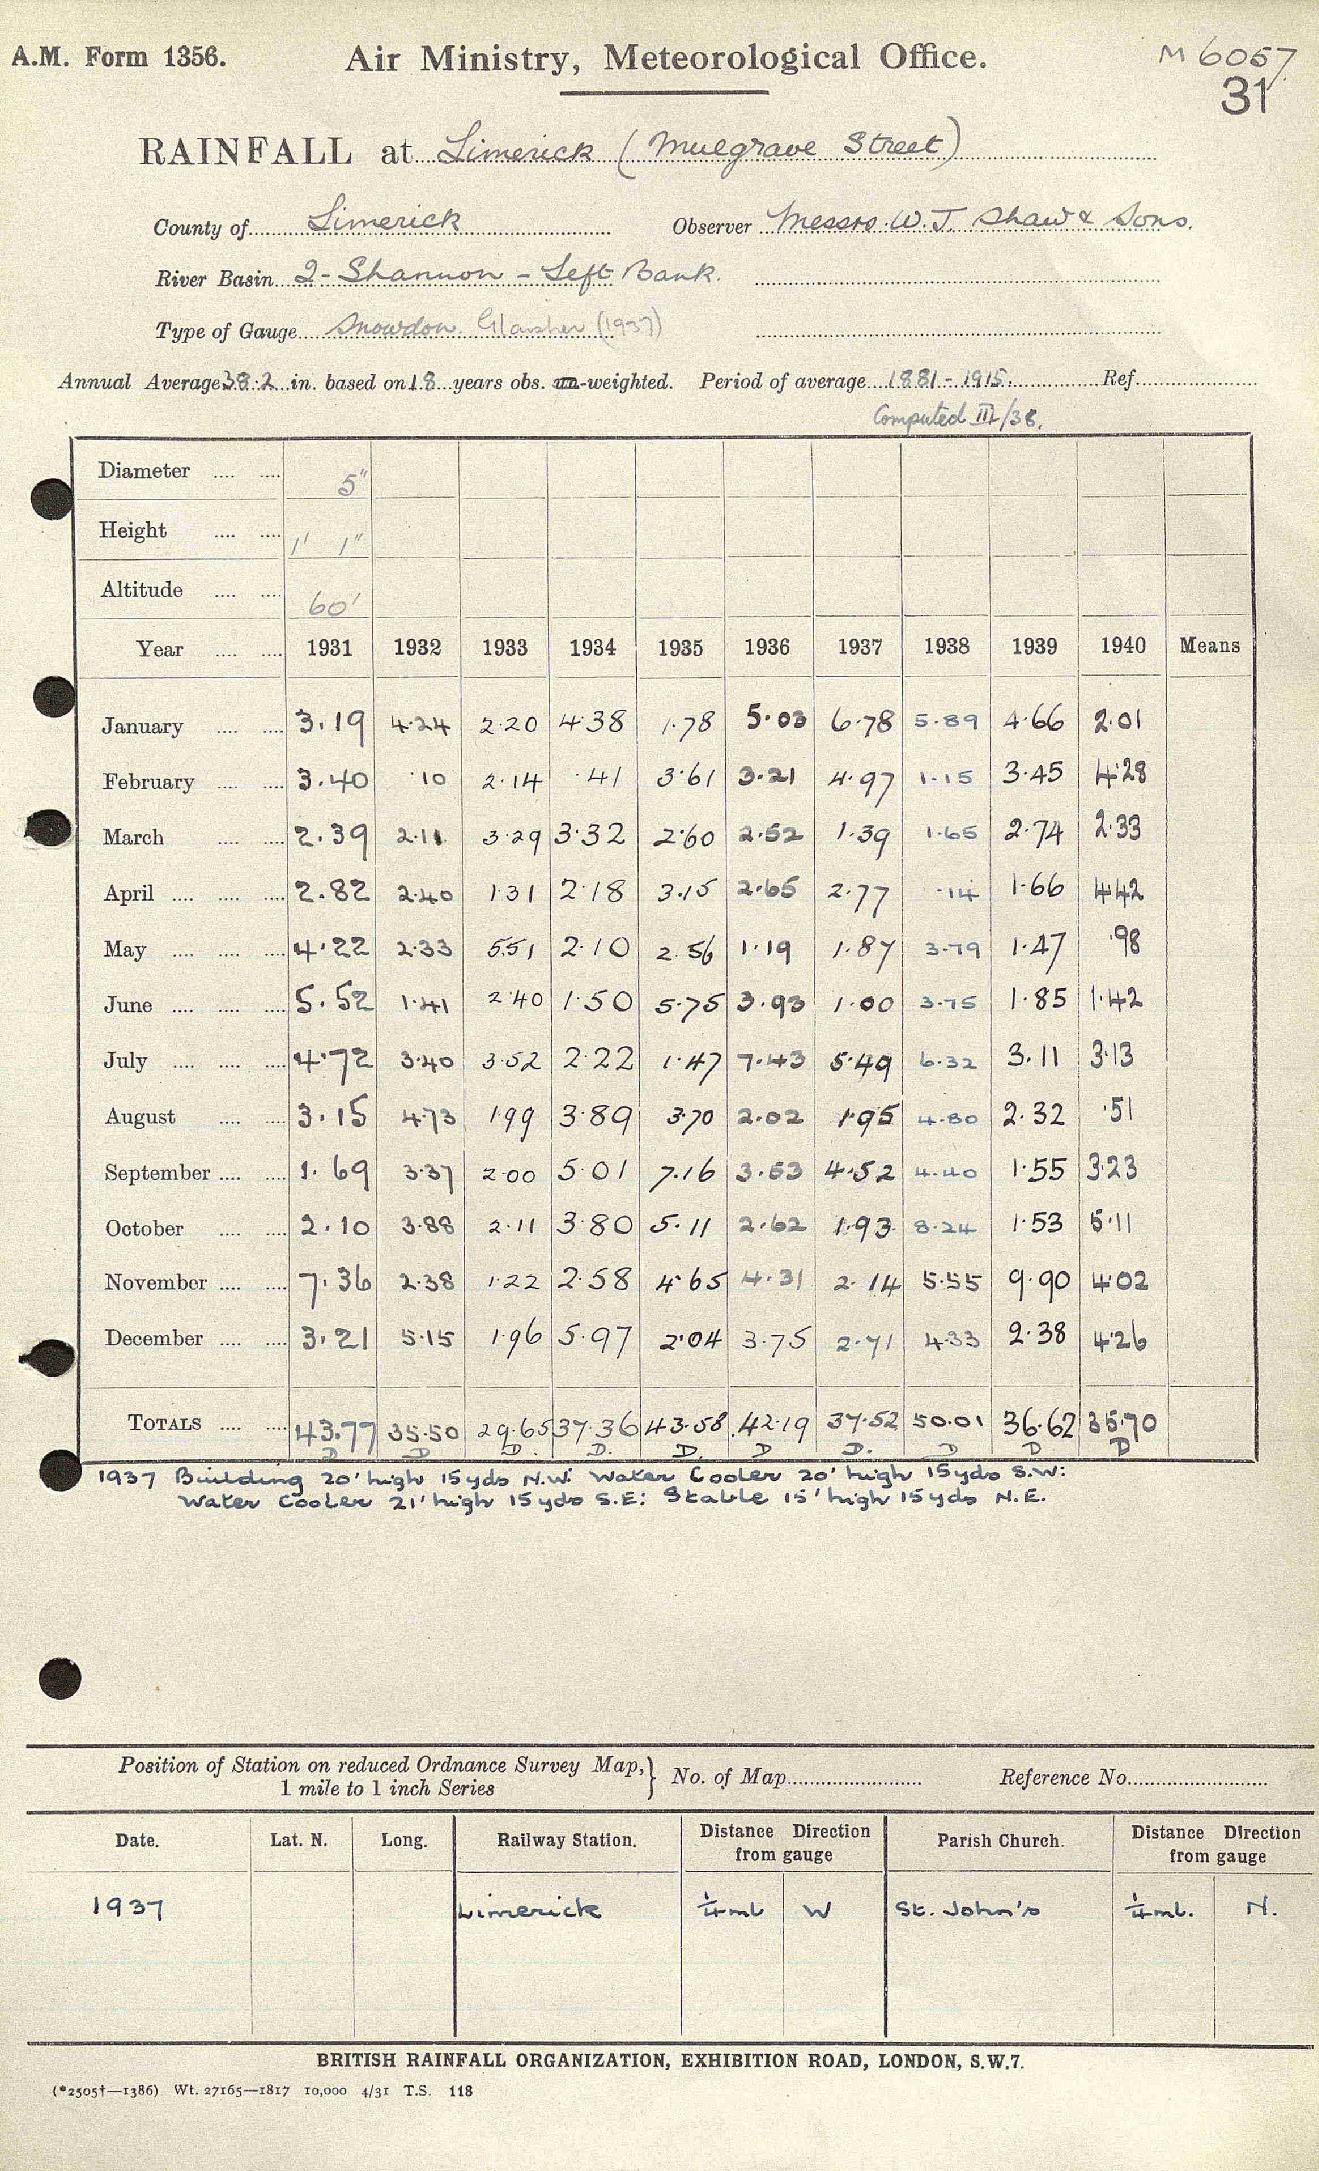 A.M. Form 1356.
Air Ministry, Meteorological Office.
M 6057
31
RAINFALL at Limerick (Mulgrave Street)
County of Limerick Observer Messrs. W. J. Shaw & Sons.
River Basin 2 - Shannon - Left Bank.
Type of Gauge Snowdon. Glaisher (1937)
Annual Average 38.2 in. based on 18 years obs. -weighted. Period of average 1881-1915 Ref.
Computed III/38.
Diameter 5"
Height 1' 1"
Altitude 60'
Year 1931 1932 1933 1934 1935 1936 1937 1938 1939 1940 Means
January 3.19 4.24 2.20 4.38 1.78 5.03 6.78 5.89 4.66 2.01
February 3.40 .10 2.14 .41 3.61 3.21 4.97 1.15 3.45 4.28
March 2.39 2.11 3.29 3.32 2.60 2.52 1.39 1.65 2.74 2.33
April 2.82 2.40 1.31 2.18 3.15 2.65 2.77 .14 1.66 4.42
May 4.22 2.33 5.51 2.10 2.56 1.19 1.87 3.79 1.47 .98
June 5.52 1.41 2.40 1.50 5.75 3.93 1.00 3.75 1.85 1.42
July 4.72 3.40 3.52 2.22 1.47 7.43 5.49 6.32 3.11 3.13
August 3.15 4.73 1.99 3.89 3.70 2.02 1.95 4.80 2.32 .51
September 1.69 3.37 2.00 5.01 7.16 3.53 4.52 4.40 1.55 3.23
October 2.10 3.88 2.11 3.80 5.11 2.62 1.93 8.24 1.53 5.11
November 7.36 2.38 1.22 2.58 4.65 4.31 2.14 5.55 9.90 4.02
December 3.21 5.15 1.96 5.97 2.04 3.75 2.71 4.33 2.38 4.26
TOTALS 43.77 35.50 29.65 37.36 43.58 42.19 37.52 50.01 36.62 35.70
D D D. D. D. D D. D D D
1937 Building 20' high 15yds N.W: Water Cooler 20' high 15yds S.W:
Water Cooler 21' high 15yds S.E: Stable 15' high 15yds N.E.
Position of Station on reduced Ordnance Survey Map, } No. of Map Reference No.
1 mile to 1 inch Series
Date. Lat. N. Long. Railway Station. Distance Direction from gauge Parish Church. Distance Direction from gauge
1937 Limerick ¼ml W St. John's ¼ml. N.
BRITISH RAINFALL ORGANIZATION, EXHIBITION ROAD, LONDON, S.W.7.
(*2505†—1386) Wt. 27165—1817 10,000 4/31 T.S. 118